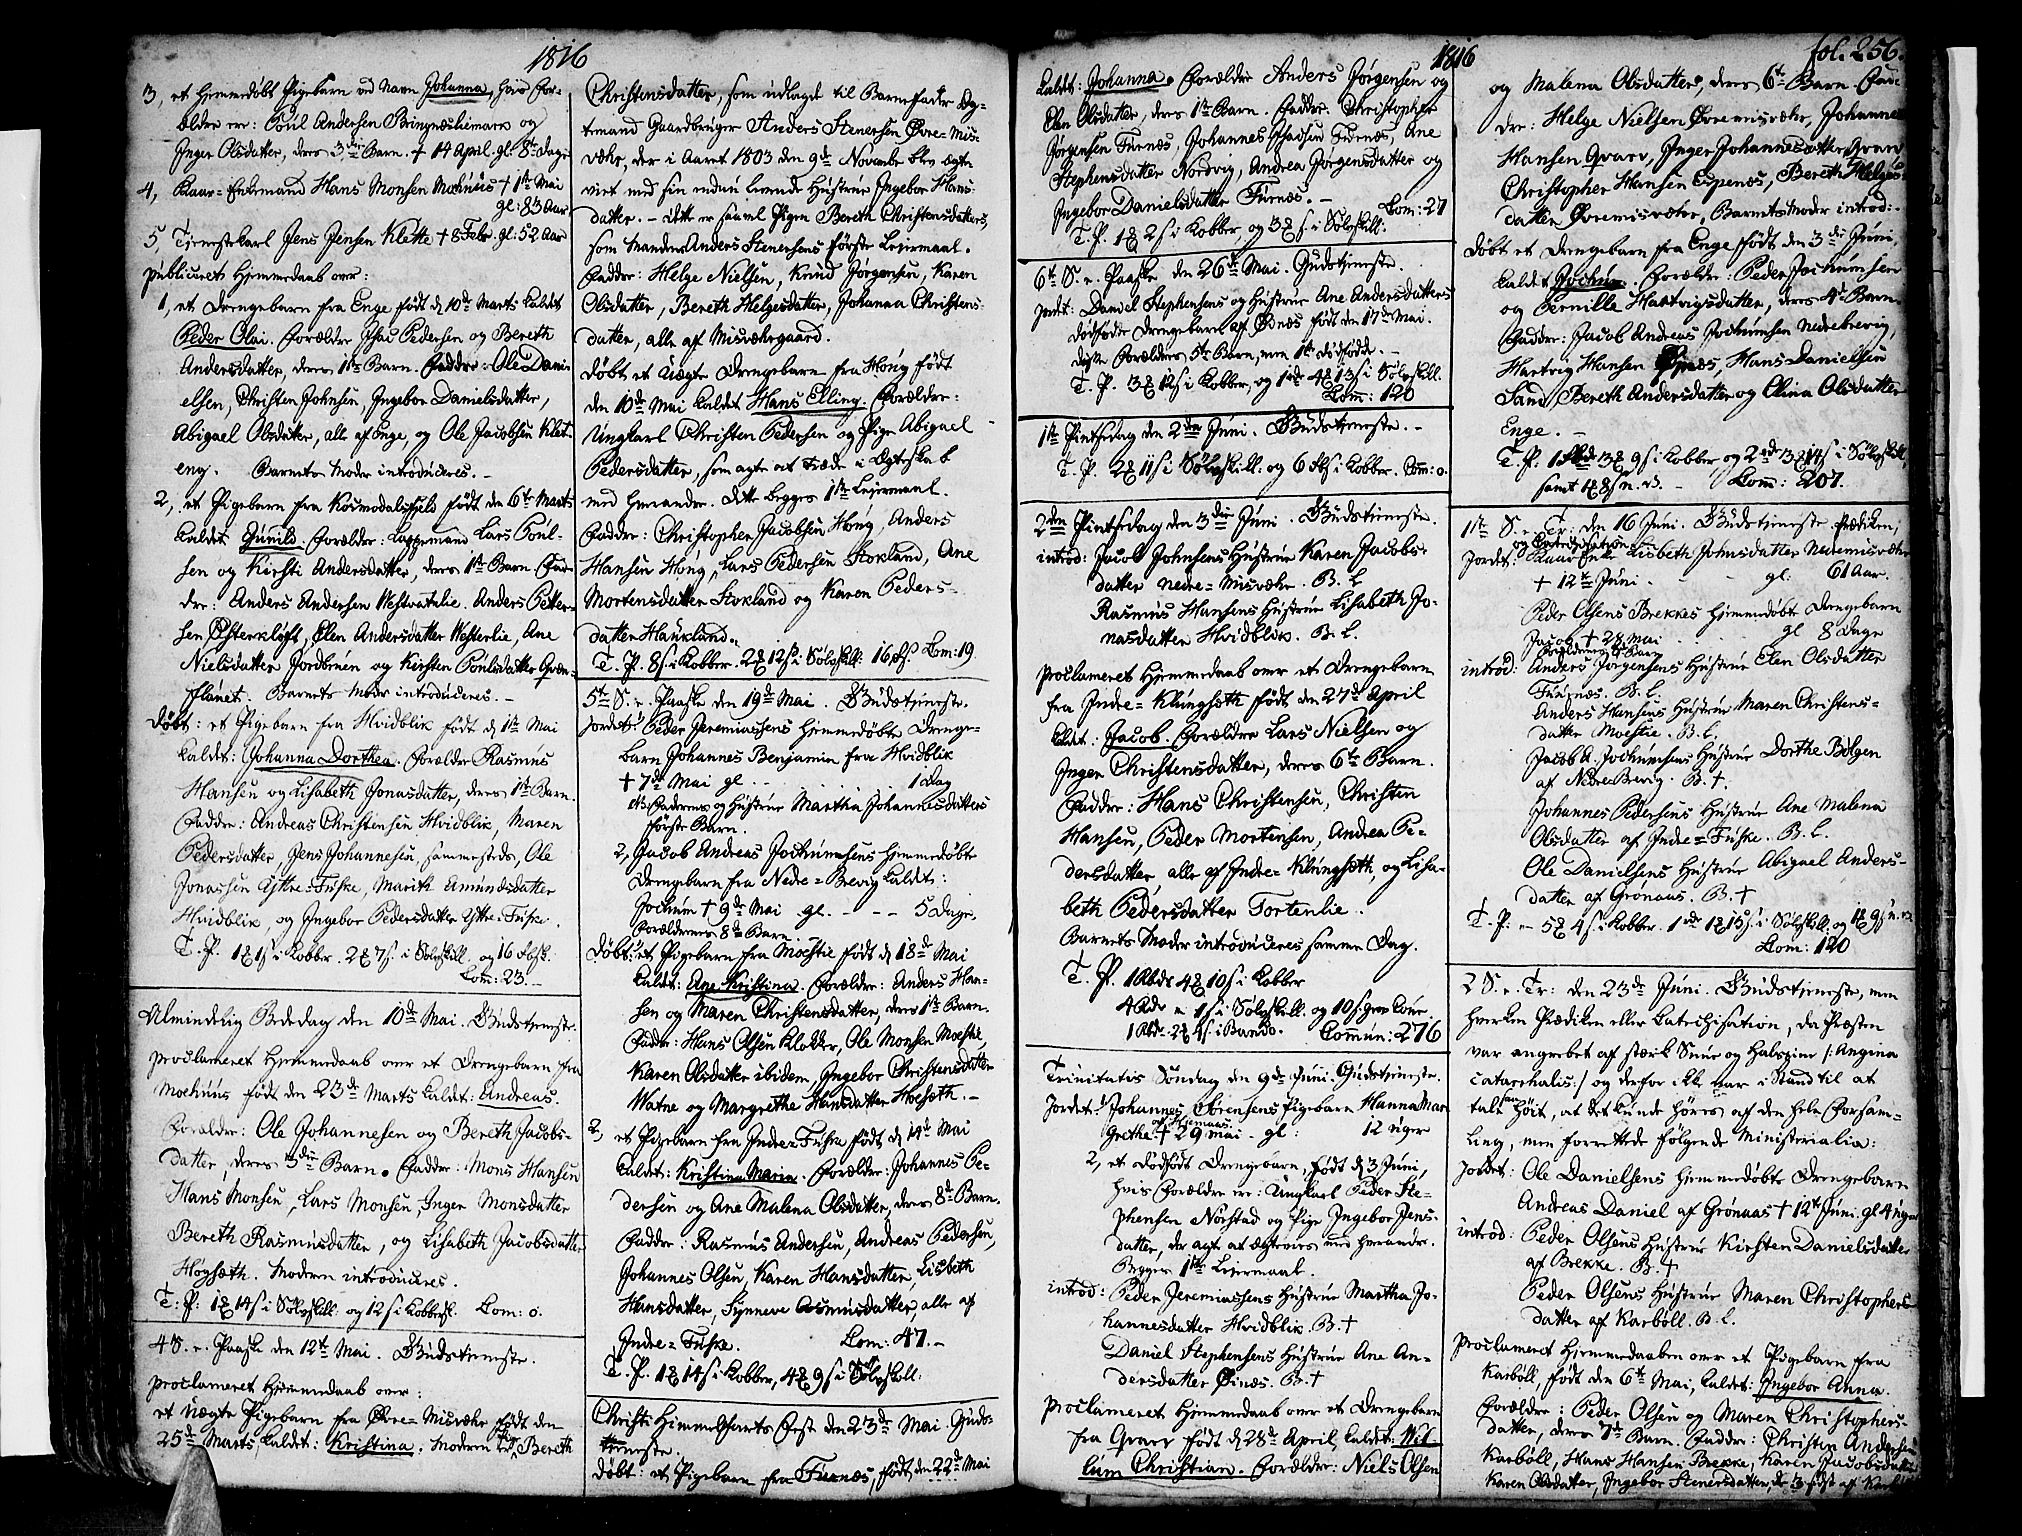 1816
3, et hjemmedöbt Pigebarn ved Navn Johanna, hvis For-
ældre er: Poul Andersen Bringnæslimark og
Inger Olsdatter, deres 3die Barn. + 14 April gl. 8te Dage
4, Kaar-Enkemand Hans Monsen Mohnüs + 1te Mai
gl: 83 Aar
5 Tjenestekarl Jens Jensen Klette + 8 Febr. gl: 52 Aar
publiceret Hjemmedaab over:
1, et Drengebarn fra Enge födt d 10de Marts kaldet
Peder Olai. Forældre Isac Pedersen og Bereth
Andersdatter, deres 1te Barn. Faddre: Ole Dani
elsen, Christen Johnsen, Ingebor Danielsdatter,
Abigael Olsdatter, alle af Enge, og Ole Jacobsen Klet-
eng. Barnets Moder introduceres. -
2, et Pigebarn fra Kosmodalsfjeld födt den 6te Marts
kaldet Gunild. Forældre: Lappemand Lars Poul-
sen og Kirsti Andersdatter, deres 1te Barn. Fad-
dre: Anders Andersen Westerlie, Anders Petter-
sen Osterklöft, Elen Andersdatter Westerlie, Ane
Nielsdatter Jordbrüen og Kirsten Poulsdatter
Barnets Moder introduceres. -
Döbt: et Pigebarn fra Hvidblik födt d 1te Mai
kaldet: Johanna Dorthea. Forældre Rasmüs
Hansen og Lisabeth Jonasdatter, deres 1te Barn.
Faddre: Andreas Christensen Hvidblik, Maren
Pedersdatter, Jens Johannesen, sammesteds, Ole
Jonassen Yttre-Füske, Marith Amündsdatter
Hvidblik, og Ingebor Pedersdatter Yttre-Füske.
T. P. 1 1 s i Kobber. 2 7 s. i Sölvskill. og 16
Com: 23.
Almindelig Bededag den 10de Mai. Gudstjeneste.
proclameret Hjemmedaab over et Drengebarn fra
Mohnüs födt den 23de Marts kaldet: Andreas.
Forældre: Ole Johannesen og Bereth Jacobs-
datter, deres 3die Barn. Faddre: Mons Hansen
Hans Monsen, Lars Monsen, Inger Monsdatter
Bereth Rasmüsdatter, og Lisabeth Jacobsdatter
Høgsæth. Modren introduceres.
T: P: 1 14 s i Sölvskill. og 12 s i Kobbersk. Com: 0.
4 S. e. Paaske den 12te Mai. Gudstjeneste.
proclameret Hjemmedaab over:
et Uægte Pigebarn fra Övre-Misvæhr födt den
25de Marts kaldet: Kristina. Modren Bereth
Christensdatter, som udlagde til Barnefader Eg-
temand Gaardbruger Anders Stenersen Övre-Mis-
væhr, der i Aaret 1803 den 9de Novembr blev ægte
viet med sin endnu levende Hustrüe Ingebor Hans-
datter. - Dette er saavel Pigen Bereth Christensdatters,
som Manden Anders Stenersens förste Leiermaal.
Faddre: Helge Nielsen, Knud Jörgensen, Karen
Olsdatter, Bereth Helgesdatter, Johanna Christens-
datter, alle af Misvæhrgaard.
Döbt et Uægte Drengebarn fra Höng födt
den 10de Mai kaldet Hans Elling. Forældre:
Ungkarl Christen Pedersen og Pige Abigael
Pedersdatter, som agte at træde i Ægteskab
med hverandre. Dette begges 1te Leiermaal.
Faddre: Christopher Jacobsen Höng, Anders
Hansen Höng, Lars Pedersen Stokland, Ane
Mortensdatter Stokland og Karen Peders-
datter Haükland.
T. P. 8 s i Kobber. 2 12 s i Sölvskill: 16 Com: 19.
5te S. e. Paaske den 19de Mai. Gudstjeneste.
Jordet: 1 Peder Jeremiassens hjemmedöbte Drenge-
barn Johannes Benjamin fra Hvidblik
+ 7de Mai gl. 1 dag
Faderens og Hustrüe Martha Johannesdatters
förste Barn.
2, Jacob Andreas Jochümsens hjemmedöbte
Drengebarn fra Nedre-Brevig kaldet:
Jochüm + 9de Mai gl. - - - 5 Dage.
Forældrenes 8de Barn
Döbt: et Pigebarn fra Moestie födt d 18de Mai
kaldet: Ane Kristina. Forældre: Anders Han-
sen og Maren Christensdatter, deres 1te Barn.
Faddre: Hans Olsen Klokker, Ole Monsen Moestie,
Karen Olsdatter ibidem, Ingebor Christensdatter
Watne og Margrethe Hansdatter Hoesæth. -
2, et Pigebarn fra Indre-Füske födt d 14de Mai
kaldet: Kristina Maria. Forældre: Johannes Pe-
dersen og Ane Malena Olsdatter, deres 8de Barn.
Faddre: Rasmüs Andersen, Andreas Pedersen,
Johannes Olsen, Karen Hansdatter, Lisbeth
Hansdatter, Synneve Asmüsdatter, alle af
Indre-Füske. Com: 47. -
T. P. 1 14 s i Kobber, 4 9 s i Sölvskill:
Christi Himmelfarts Fest den 23de Mai. Guds-
tjeneste.
Döbt: et Pigebarn fra Furnæs, födt den 22de Mai
1816
fol. 256.
kaldet: Johanna. Forældre Anders Jörgensen og
Elen Olsdatter, deres 1te Barn. Faddre. Christopher
Jörgensen Furnæs, Johannes Furnæs, Ane
Stephensdatter Nordvig, Andrea Jörgensdatter og
Ingebor Danielsdatter Furnæs. - Com: 27
T. P. 1 2 s i Kobber, og 3 s i Sölvskill:
6te S. e. Paaske den 26de Mai. Gudstjeneste.
Jordet: Daniel Stephensens og Hustrüe Ane Andersdatters
dödfödte Drengebarn af Öinæs födt den 17de Mai.
disse Forældres 5te Barn, men 1te dödfödte. -
T. P. 3 12 s i Kobber, og 1 4 13 s i Sölvskill.
Com: 120
1te Pintsdag den 2den Juni. Gudstjeneste. -
T. P. 2 11 s i Sölvskill. og 6 i Kobber. Com: 0.
2den Pintsdag den 3die Juni. Gudstjeneste.
introd: Jacob Johnsens Hustrüe Karen Jacobs-
datter nedre-Misvæhr. B. L
Rasmüs Hansens Hustrüe Lisabeth Jo-
nasdatter Hvidblik. B. L.
proclameret Hjemmedaab over et Drengebarn
fra Indre-Klüngsæth födt den 27de April
kaldet: Jacob. Forældre Lars Nielsen og
Inger Christensdatter, deres 6te Barn.
Faddre: Hans Christensen, Christen
Hansen, Peder Mortensen, Andrea Pe-
dersdatter alle af Indre-Klüngsæth, og Lisa-
beth Pedersdatter Tortenlie.
Barnets Moder introduceres samme Dag.
T. P. 1 Rbdr 4 10 s i Kobber
4 Rdr 1 s i Sölvskill. og 10 s
1 Rbdr. 2 4 s i Banko. Commun: 276
Trinitatis Söndag den 9de Juni. Gudstjeneste.
Jordet: 1 Johannes Sörensens Pigebarn Hanna Mar
Grethe af Hjemaas + 29 Mai. gl: 12 uger
2, et dödfödt Drengebarn, födt d 3 Juni,
hvis Forældre er: Ungkarl Peder Ste-
phensen Nörstad og Pige Ingebor Jens-
datter, der agte at ægtevies med hverandre.
Begges 1te Leiermaal.
introd: Peder Jeremiassens Hustrüe Martha Jo-
hannesdatter Hvidblik. B. +
Daniel Stephensens Hustrüe Ane An-
dersdatter Öinæs. B. +
proclameret Hjemmedaab over et Drengebarn
fra Qvarv födt d 28de April, kaldet: Wil-
lum Christian. Forældre: Niels Olsen
1816
og Malena Olsdatter, deres 6te Barn. Fad-
dre: Helge Nielsen Övremisvæhr, Johannes
Hansen Qvarv, Inger Johannesdatter Qvarv,
Christopher Hansen Espenæs, Bereth Helges-
datter Övremisvæhr, Barnets Moder introd: -
Döbt et Drengebarn fra Enge födt den 3die Juni,
kaldet Jochüm. Forældre: Peder Jochümsen
og Pernille Hartvigsdatter, deres 4de Barn.
Faddre: Jacob Andreas Jochümsen Nedrebrevig,
Hartvig Hansen Öinæs, Hans Danielsen
Sand, Bereth Andersdatter og Elina Olsdatter
Enge. -
T. P: 1 3 9 s i Kobber, og 2 3 14 s i Sölvskill,
samt 1 8 s n. v. - Com: 207.
1te S. e. Tr: den 16 Juni. Gudstjeneste, Prædiken,
og Catechisation
Jordet: Kaarenke Lisbeth Johnsdatter Nedremisvæhr
+ 12te Juni - - gl: 61 Aar.
Peder Olsens Brekkes hjemmedöbte Drengebarn
Jacob + 28 Mai gl 8 Dage
Forældrenes Barn
introd: Anders Jörgensens Hustrüe Elen Olsdatter
Furnæs. B. L.
Anders Hansens Hustrüe Maren Christens-
datter Moestie. B. L.
Jacob A. Jochümsens Hustrüe Dorthe Bölgen
af Nedre Brevig. B. +.
Johannes Pedersens Hustrüe Ane Malena
Olsdatter af Indre-Füske. B. L.
Ole Danielsens Hustrüe Abigael Anders-
datter af Grönaas. B. +
T. P: - 5 4 s i Kobber. 1 1 13 s. i Sölvskill. og 1 9 s n. v.
Com: 120
2 S. e. Tr: den 23de Juni. Gudstjeneste, men
hverken Prædiken eller Catechisation, da Præsten
var angrebet af stærk Snue og Halssyge /: Angina
catarrhalis:/ og derfor ikke var i Stand til at
tale saa höit, at det kunde höres af den hele Forsam-
ling, men forrettede fölgende Ministerialia:
Jordet: Ole Danielsens hjemmedöbte Drengebarn
Andreas Daniel af Grönaas + 12te Juni. gl 4 uger
introd: Peder Olsens Hustrüe Kirsten Danielsdatter
af Brekke. B. +
Peder Olsens Hustrüe Maren Christophers-
datter af Karböll. B. L.
proclameret Hjemmedaaben over et Pigebarn fra
Karböll, födt den 6te Mai, kaldet: Ingebor Anna.
Forældre: Peder Olsen og Maren Christophers-
datter, deres 7de Barn. Faddre: Christen Andersen
Karböll, Hans Hansen Brekke, Karen Jacobsdatter
Karen Olsdatter, Ingebor Stenersdatter, de 3 sidst af